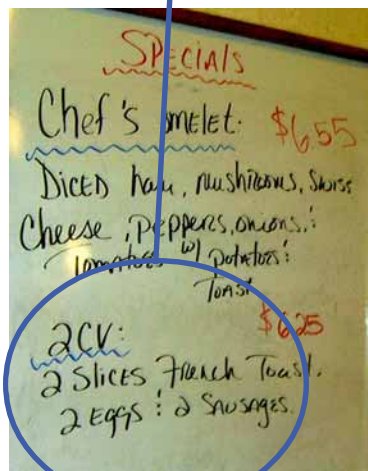 SPECIALS
Chef's omelet. $6.55
DICED ham, mushrooms, SWISS
Cheese, peppers, onions, :
Tomatoes w/ potatoes :
TOAST
2CV: $6.25
2 SLICES French Toast.
2 EGGS : 2 SAUSAGES.